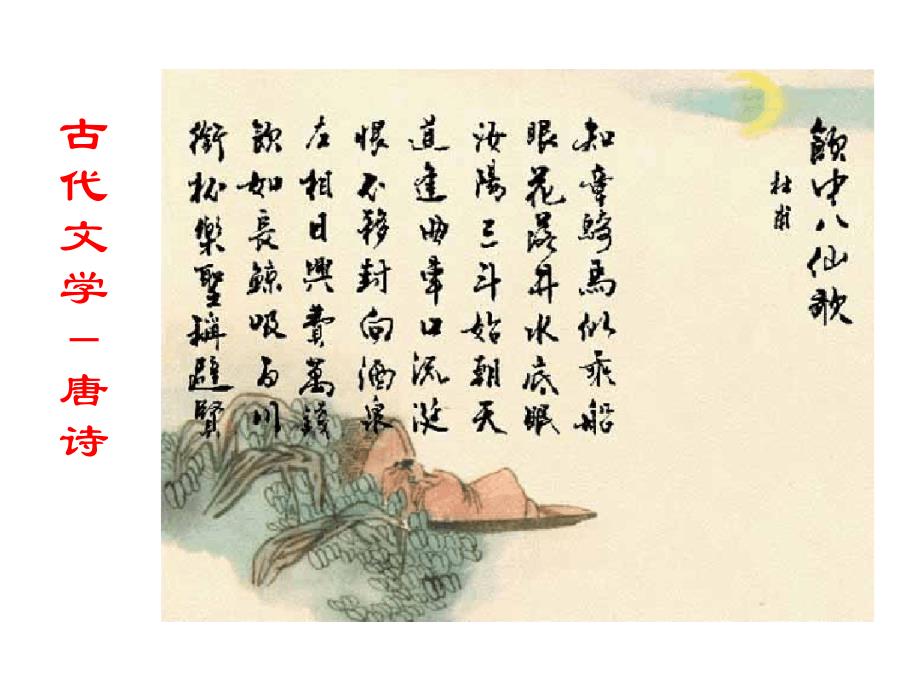 古代文学－唐诗
飲中八仙歌
杜甫
知章騎馬似乘船
眼花落井水底眠
汝陽三斗始朝天
道逢曲車口流涎
恨不移封向酒泉
左相日興費萬錢
飲如長鯨吸百川
銜杯樂聖稱避賢